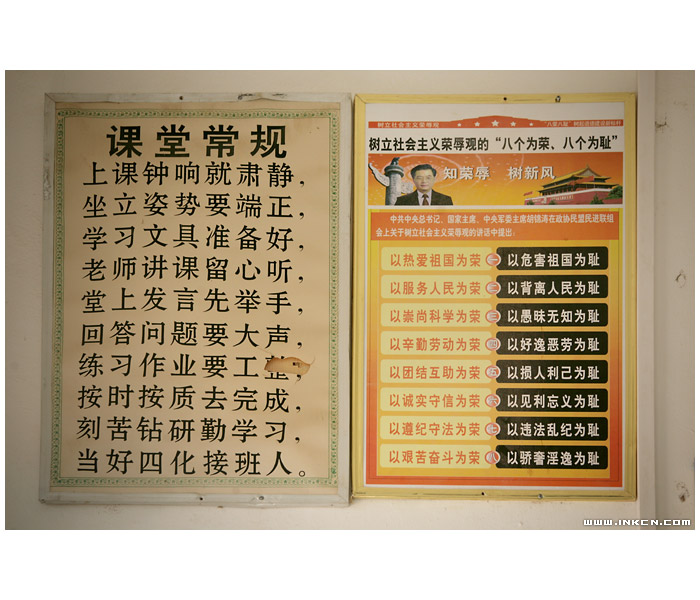 课堂常规
上课钟响就肃静，
坐立姿势要端正，
学习文具准备好，
老师讲课留心听，
堂上发言先举手，
回答问题要大声，
练习作业要工整，
按时按质去完成，
刻苦钻研勤学习，
当好四化接班人。
树立社会主义荣辱观
树立社会主义荣辱观的“八个为荣、八个为耻”
知荣辱 树新风
中共中央总书记、国家主席、中央军委主席胡锦涛在政协民盟民进联组
会上关于树立社会主义荣辱观的讲话中提出：
以热爱祖国为荣 一 以危害祖国为耻
以服务人民为荣 二 以背离人民为耻
以崇尚科学为荣 三 以愚昧无知为耻
以辛勤劳动为荣 四 以好逸恶劳为耻
以团结互助为荣 五 以损人利己为耻
以诚实守信为荣 六 以见利忘义为耻
以遵纪守法为荣 七 以违法乱纪为耻
以艰苦奋斗为荣 八 以骄奢淫逸为耻
www.INKCN.com